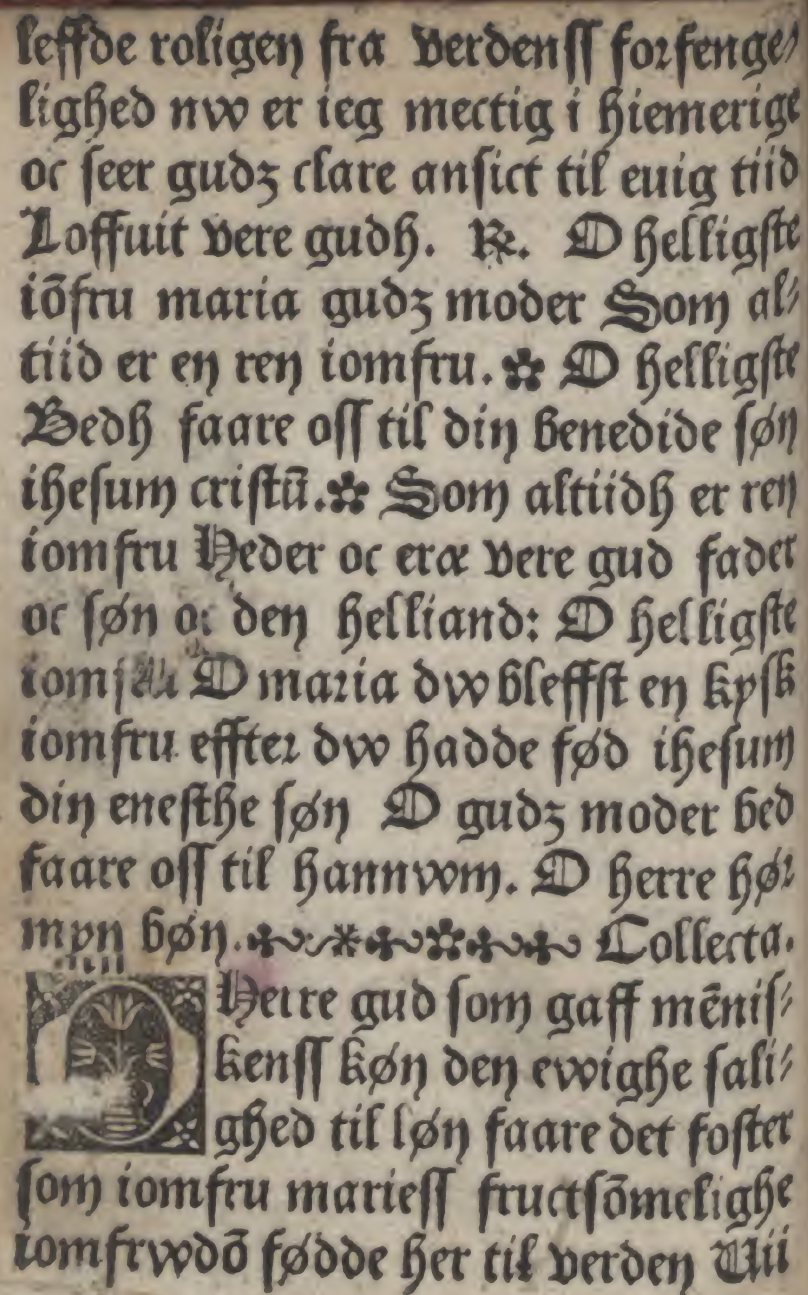 leffde roligen fra verdenss forfenge⸗
lighed nw er ieg mectig i hiemerige
oc seer gudz clare ansict til euig tiid
Loffuit vere gudh. ℟. O helligste
iōfru maria gudz moder Som al⸗
tiid er en ren iomfru. ✿ O helligste
Bedh faare oss til din benedide søn
ihesum cristū. ✿ Som altiidh er ren
iomfru Heder oc eræ vere gud fader
oc søn oc den helliand: O helligste
iomfru O maria dw bleffst en kysk
iomfru effter dw hadde fød ihesum
din enesthe søn O gudz moder bed
faare oss til hannwm. O herre hør
myn bøn. Collecta.
O Herre gud som gaff mēnis⸗
kenss køn den ewighe sali⸗
ghed til løn faare det foster
som iomfru mariess fructsōmelighe
iomfrwdō fødde her til verden Wii